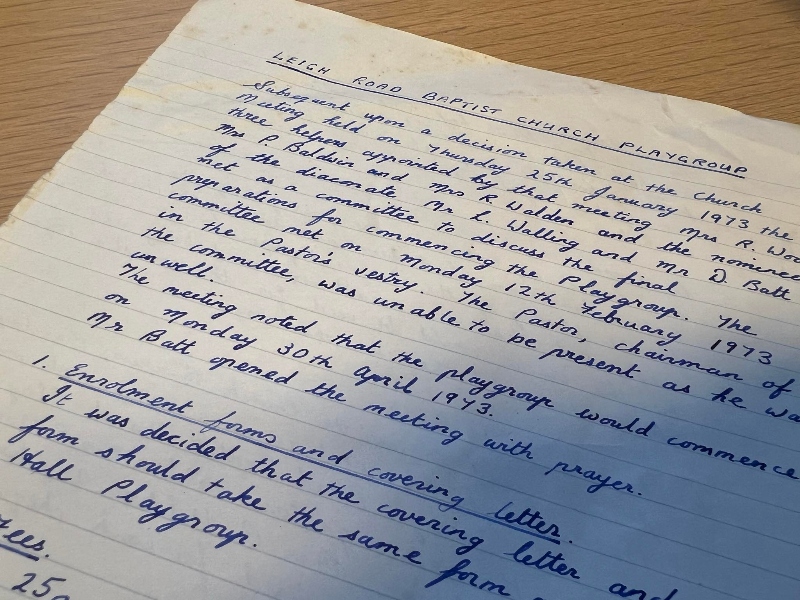 LEIGH ROAD BAPTIST CHURCH PLAYGROUP
Subsequent upon a decision taken at the Church
Meeting held on Thursday 25th January 1973 the
three helpers appointed by that meeting Mrs R. Woo
Mrs P. Baldwin and Mrs R Walden and the nominees
of the diaconate Mr L. Walling and Mr D. Batt
met as a committee to discuss the final
preparations for commencing the Playgroup. The
committee met on Monday 12th February 1973
in the Pastor's vestry. The Pastor, chairman of
the committee, was unable to be present as he wa
unwell.
The meeting noted that the playgroup would commence
on Monday 30th April 1973.
Mr Batt opened the meeting with prayer.
1. Enrolment forms and covering letter.
It was decided that the covering letter and
form should take the same form
Hall Playgroup.
ees.
25